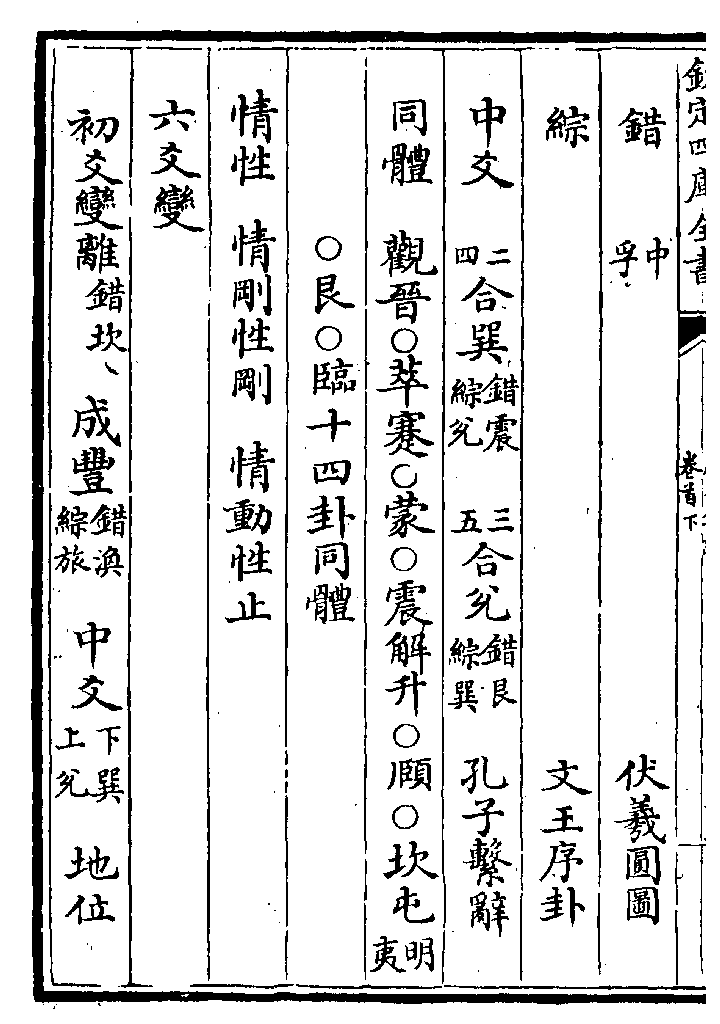 欽定四庫全書
卷首下
錯 中孚 伏羲圓圖
綜 文王序卦
中爻 二四合巽錯震綜兊 三五合兊錯艮綜巽 孔子繫辭
同體 觀晉○萃蹇○蒙○震解升○頤○坎屯明夷
○艮○臨十四卦同體
情性 情剛性剛 情動性止
六爻變
初爻變離錯坎、成豐錯渙綜旅 中爻下巽上兊 地位